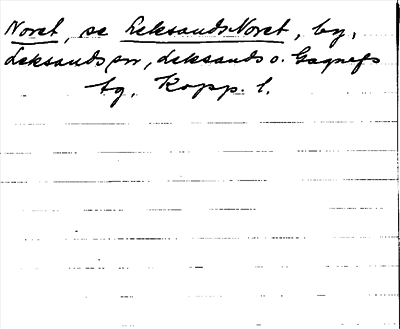 Noret, se Leksands Noret, by,
Leksands sn, Leksands o. Gagnefs
tg, Kopp. l.